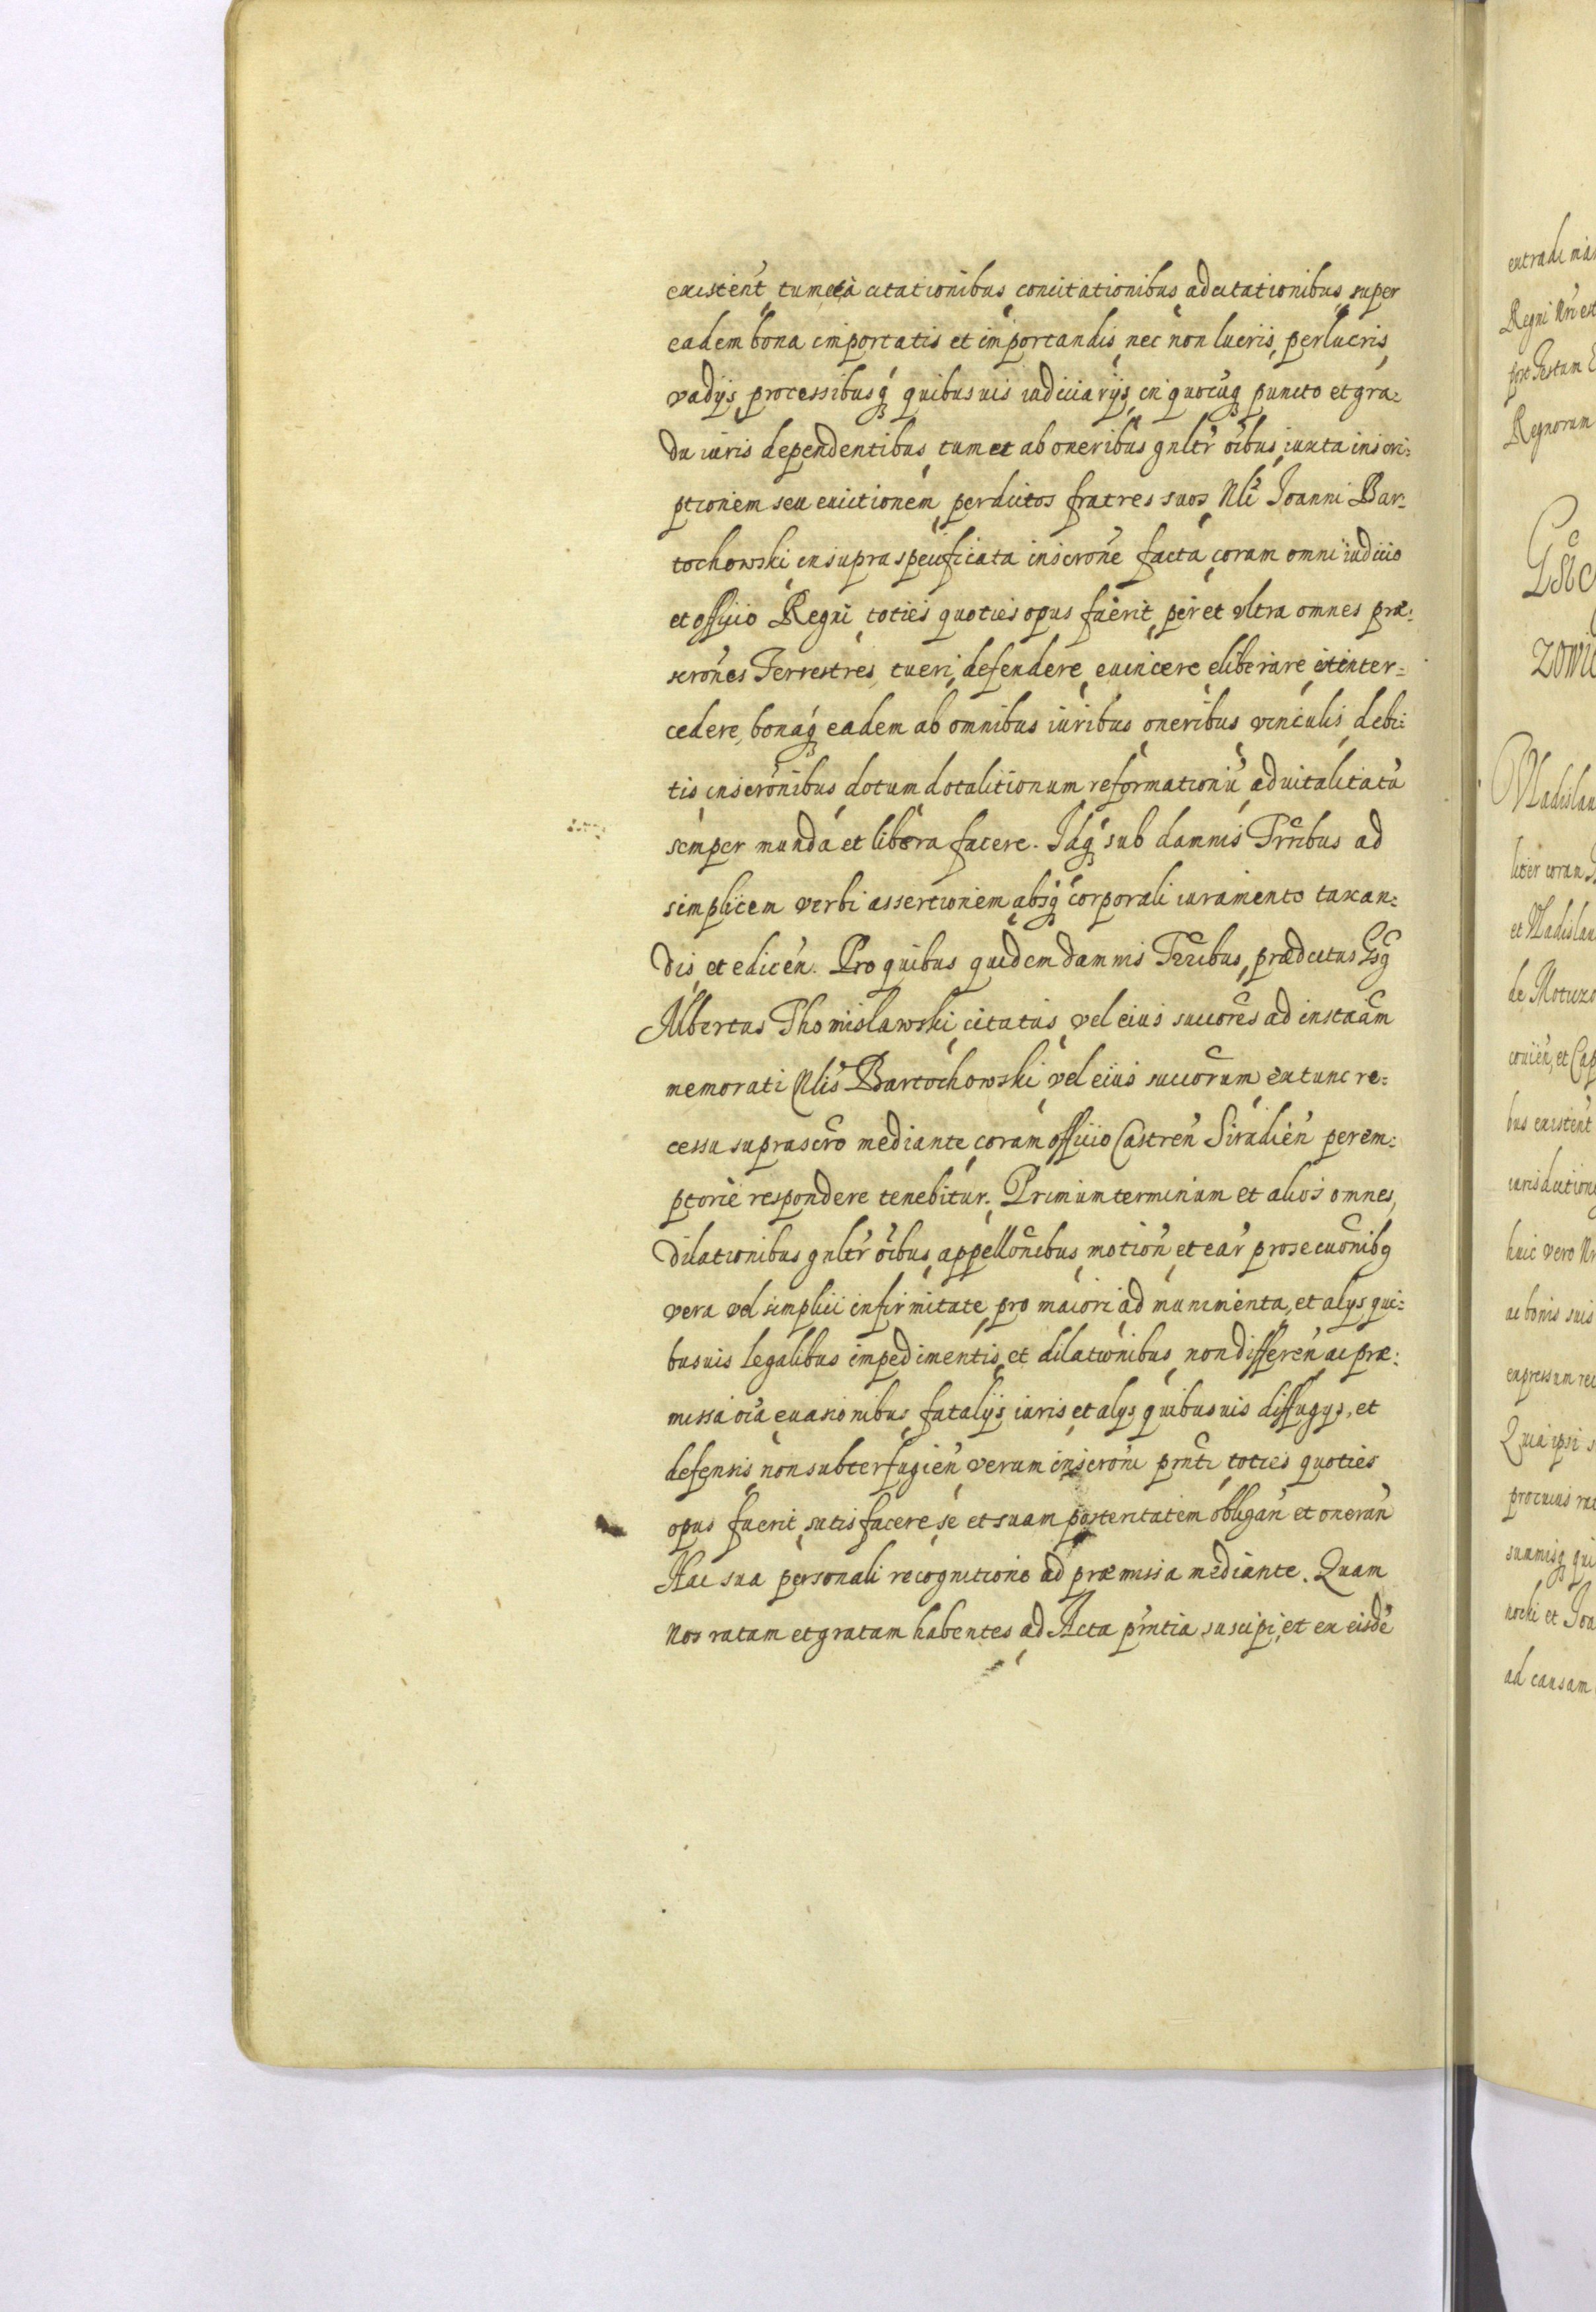 existen̄t, tum et à citationibus, concitationibus, adcitationibus, super
eadem bona importatis et importandis, nec non lucris, perlucris,
vadijs, processibusq́ꝫ quibusuis iudiciarijs, in quocūqꝫ puncto et gra-
du iuris dependentibus, tum et ab oneribus gnltr̄ oībus, iuxta inscri-
ptionem seu euictionem, per dictos fratres suos, Nlī Joanni Bar-
tochowski, in supraspecificata inscrōne facta, coram omni iudicio
et officio Regni, toties quoties opus fuerit, per et vltra omnes præ-
scrōnes Terrestres, tueri, defendere, euincere, eliberare, et inter-
cedere, bonaq́ꝫ eadem ab omnibus iuribus, oneribus, vinculis, debi-
tis, inscrōnibus dotum, dotalitionum, reformationū, aduitalitatū
semper munda et libera facere. Idq́ꝫ sub damnis Trr̄ibus ad
simplicem verbi assertionem, absq́ꝫ corporali iuramento taxan-
dis, et edicen̄. Pro quibus quidem damnis Trr̄ibus, prædictus Gsꝫ
Albertus Thomislawski, citatus, vel eius succōres ad instaām
memorati Nlis̄ Bartochowski, vel eius succōrum, extunc re-
cessu suprascr̄o mediante, coram officio Castren̄ Siradien̄ perem-
ptorie respondere tenebitur. Primum terminum et alios omnes,
dilationibus gnltr̄ oībus, appellōnibus, motion̄, et ear̄ prosecuōnibꝫ
vera vel simplici infirmitate, pro maiori, ad munimenta, et alys qui-
busuis legalibus impedimentis, et dilationibus, non differen̄, ac præ-
missa oīa euasionibus, fatalijs iuris, et alys quibusuis diffugys, et
defensis, non subterfugien̄, verum inscrōni prn̄ti, toties quoties
opus fuerit, satisfacere, se et suam posteritatem obligan̄ et oneran̄
Hac sua personali recognitione ad præmissa mediante. Quam
Nos ratam et gratam habentes, ad Acta prn̄tia suscipi, et ex eisdē